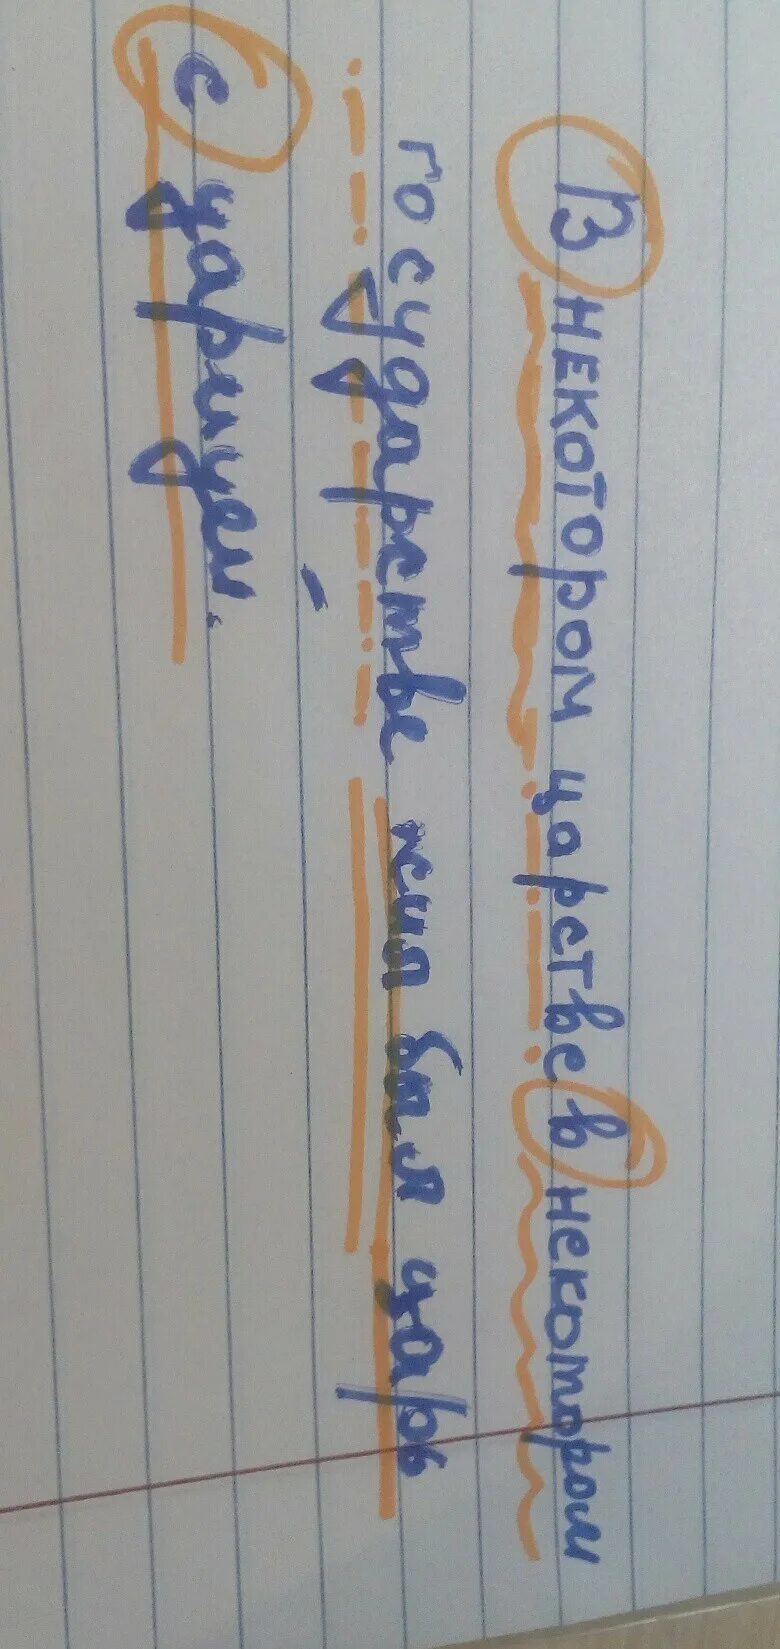 В некотором царстве в некотором
государстве жил был царь
с царицей.